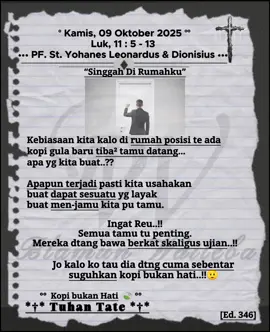 ° Kamis, 09 Oktober 2025 °°
Luk, 11 : 5 - 13
••• PF. St. Yohanes Leonardus & Dionisius •••
"Singgah Di Rumahku"
Kebiasaan kita kalo di rumah posisi te ada
kopi gula baru tiba² tamu datang...
apa yg kita buat..??
Apapun terjadi pasti kita usahakan
buat dapat sesuatu yg layak
buat men-jamu kita pu tamu.
Ingat Reu..!!
Semua tamu tu penting.
Mereka dtang bawa berkat skaligus ujian..!!
Jo kalo ko tau dia dtng cuma sebentar
suguhkan kopi bukan hati..!!🥲
°° Kopi bukan Hati 🍃 °°
*†* Tuhan Tate *†*
[Ed. 346]